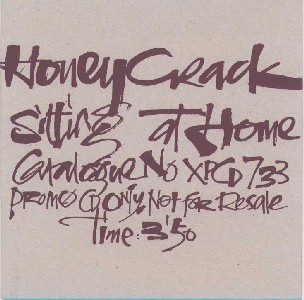 HoneyCrack
Sitting at Home
Catalogue No XPCD 733
Promo CD only, Not for Resale
Time: 3'50